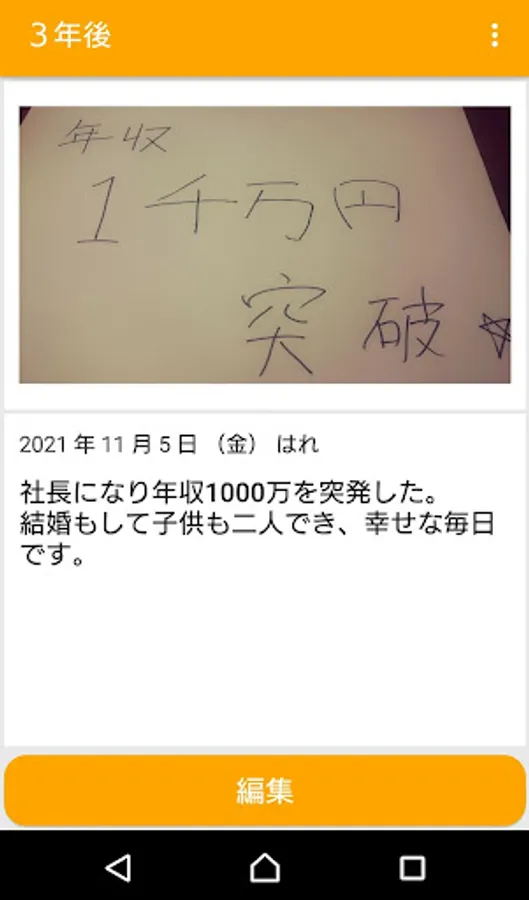 ３年後
年収
1千万円
突破☆
2021 年 11 月 5 日 （金） はれ
社長になり年収1000万を突発した。
結婚もして子供も二人でき、幸せな毎日
です。
編集